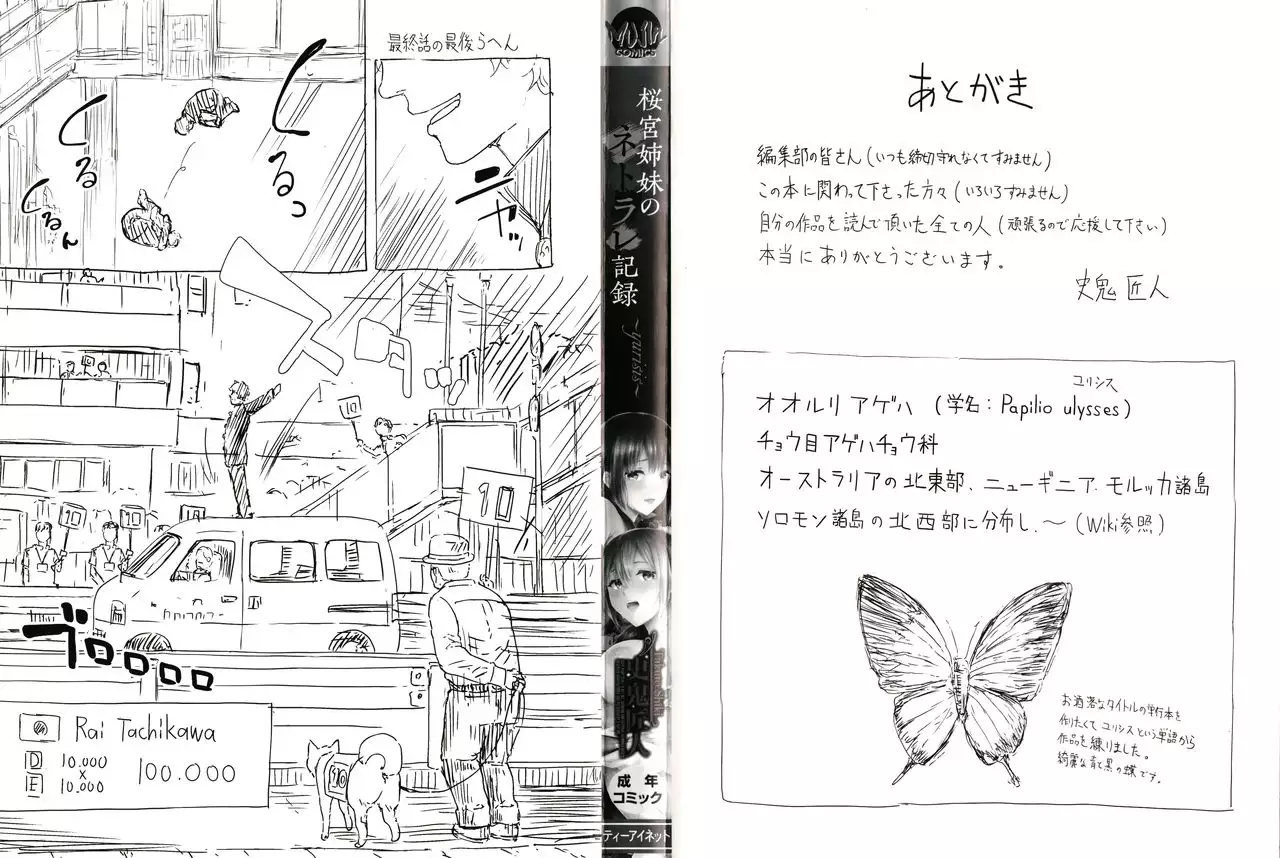 最終話の最後らへん
ニヤッ
くるくるっ
くるくるん
10
10
10
10
10
10
ブロロロロ
Rai Tachikawa
D 10.000
×
E 10.000
100.000
COMICS
桜宮姉妹の
ネトラレ記録
~yurisis~
史鬼匠人
成年
コミック
ティーアイネット
あとがき
編集部の皆さん(いつも締切守れなくてすみません)
この本に関わって下さった方々(いろいろすみません)
自分の作品を読んで頂いた全ての人(頑張るので応援して下さい)
本当にありがとうございます。
史鬼 匠人
ユリシス
オオルリアゲハ (学名:Papilio ulysses)
チョウ目アゲハチョウ科
オーストラリアの北東部、ニューギニア、モルッカ諸島
ソロモン諸島の北西部に分布し、〜(Wiki参照)
お洒落なタイトルの単行本を
作りたくてユリシスという単語から
作品を練りました。
綺麗な青と黒の蝶です。